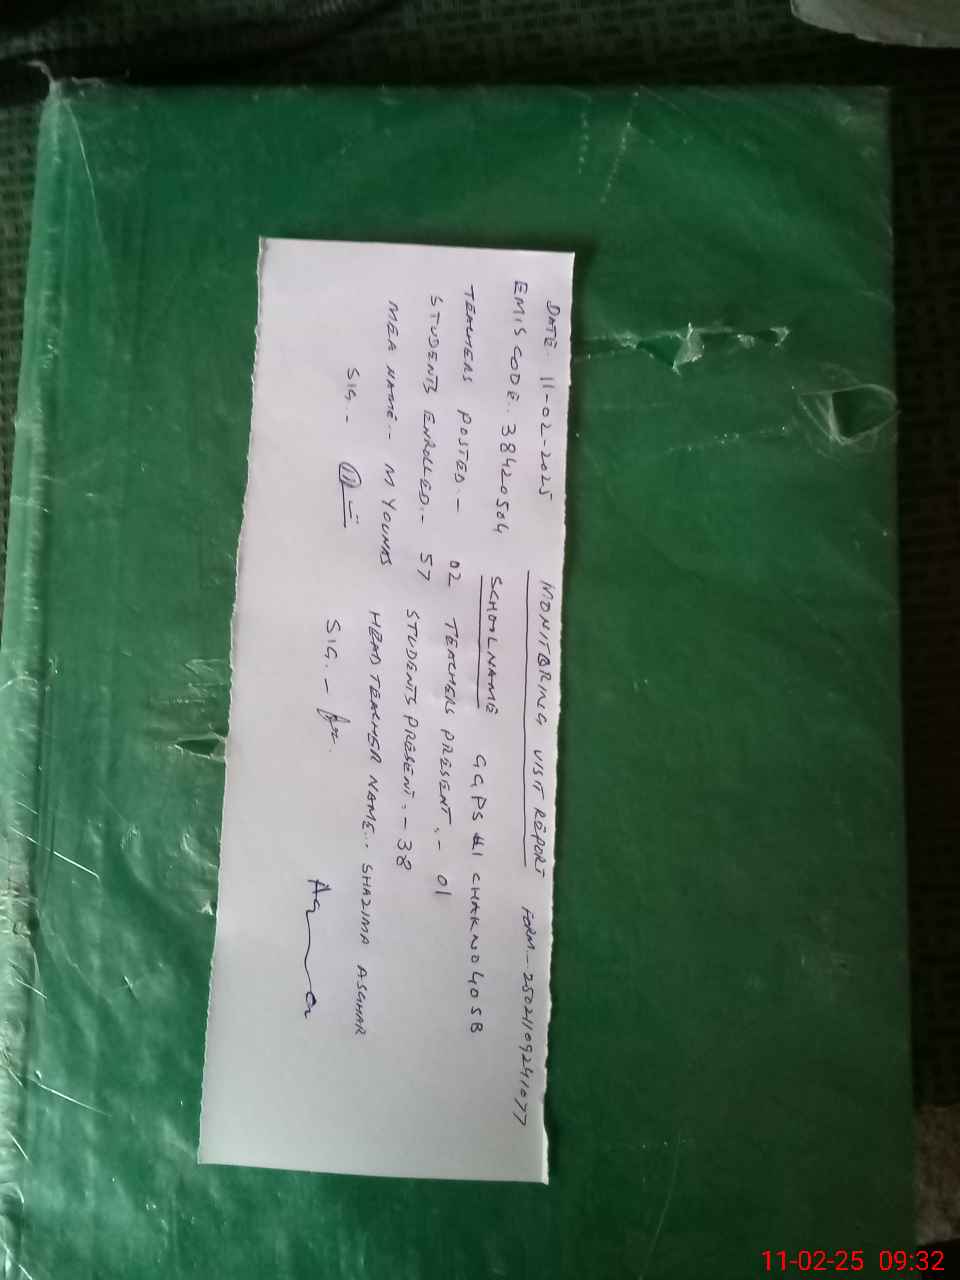 DATE.. 11-02-2025 MONITORING VISIT REPORT FORM.-25021109241077
EMIS CODE.. 38420504 SCHOOLNAME GGPS #1 CHAKNO40SB
TEACHERS POSTED.- 02 TEACHERS PRESENT.- 01
STUDENTS ENROLLED.- 57 STUDENTS PRESENT.-38
MEA NAME.- M YOUNAS HEAD TEACHER NAME.. SHAZIMA ASGHAR
SIG.- SIG.-
11-02-25 09:32